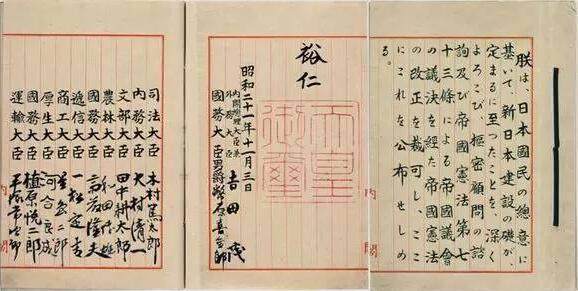 朕は、日本國民の總意に
基いて、新日本建設の礎が、
定まるに至つたことを、深く
よろこび、樞密顧問の諮
詢及び帝國憲法第七
十三條による帝國議會
の議決を經た帝國憲法
の改正を裁可し、ここ
にこれを公布せしめ
る。
内閣
裕仁
天皇
御璽
昭和二十一年十一月三日
内閣總理大臣兼
外務大臣 吉田茂
國務大臣 男爵幣原喜重郎
司法大臣 木村篤太郎
内務大臣 大村清一
文部大臣 田中耕太郎
農林大臣 和田博雄
國務大臣 斎藤隆夫
遞信大臣 一松定吉
商工大臣 星島二郎
厚生大臣 河合良成
國務大臣 植原悦二郎
運輸大臣 平塚常次郎